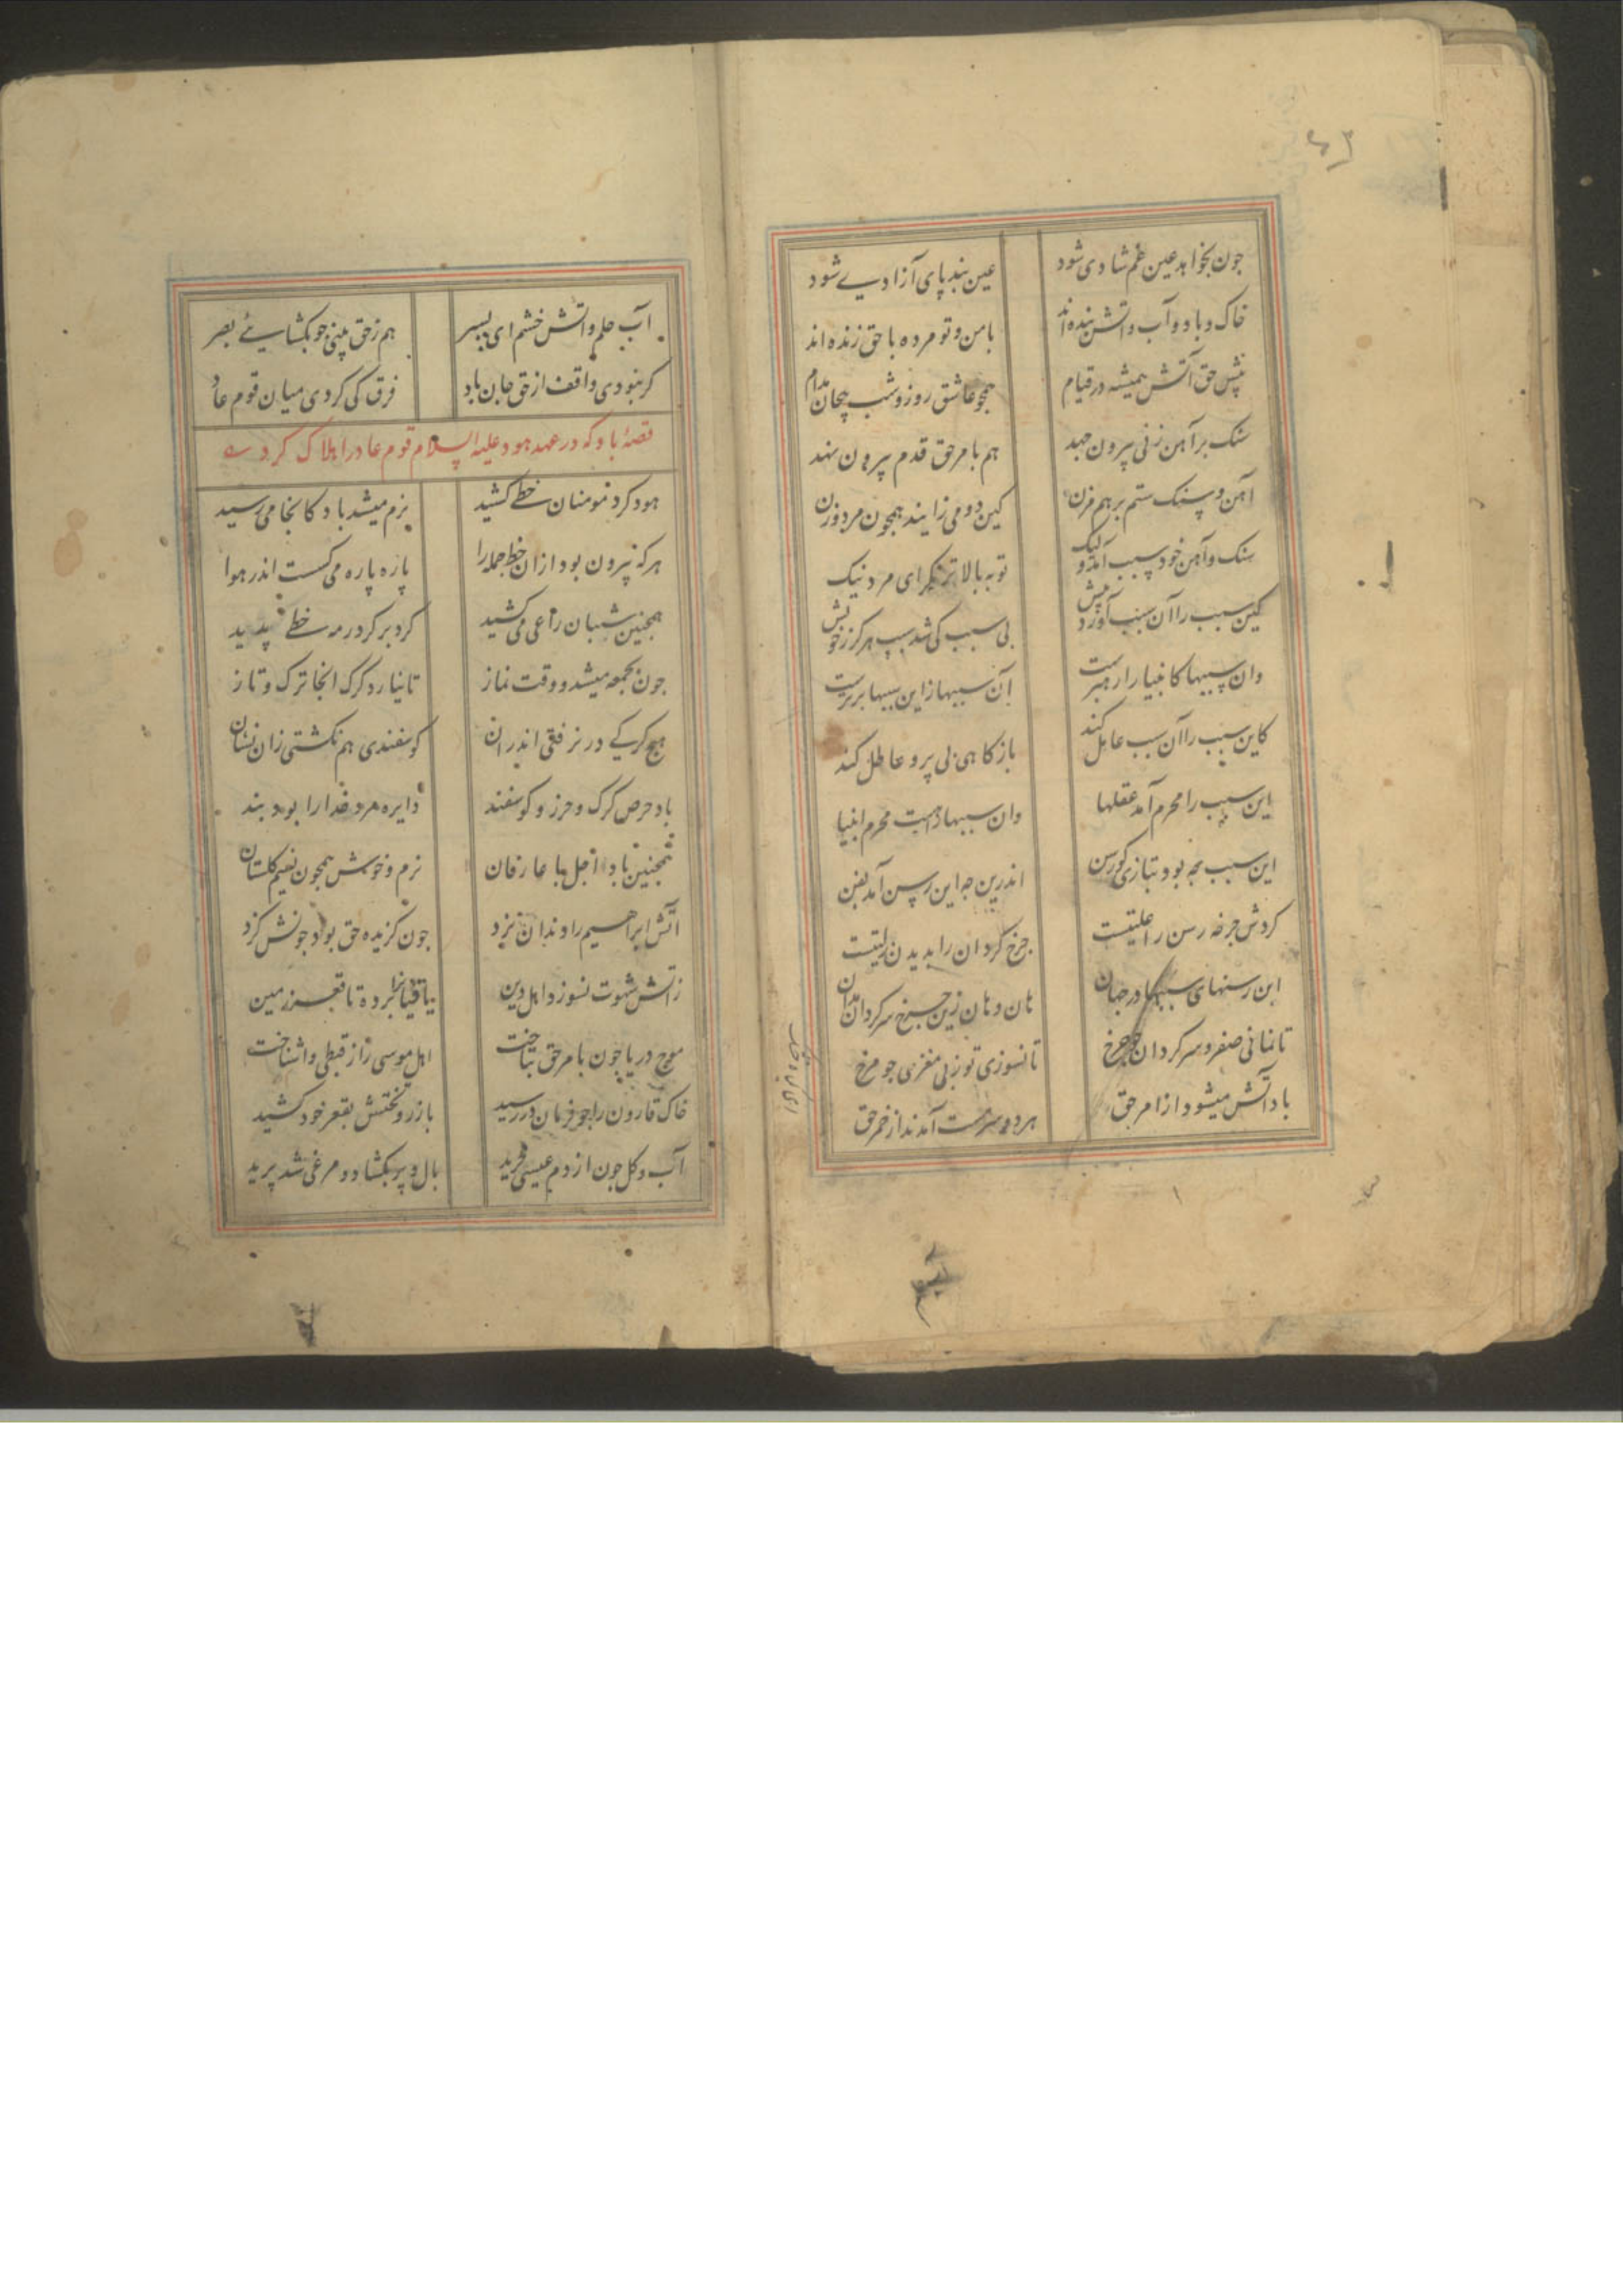 ۴۳
جون بخواهد عین غم شادی شود عین بند پای آزادیے شود
خاک و باد و آب و آتش بنده اند با من و تو مرده با حق زنده اند
پیش حق آتش همیشه در قیام همجو عاشق روز و شب پیجان مدام
سنک بر آهن زنی بیرون جهد هم بامر حق قدم بیرون نهد
آهن و سنک ستم بر هم مزن کین دو می زایند همجون مرد و زن
سنک و آهن خود سبب آمد و لیک تو به بالاتر نکر ای مرد نیک
کین سبب را آن سبب آورد پیش بی سبب کی شد سبب هرکز ز خویش
وان سببها کانبیا را رهبرست آن سببها زاین سببها برترست
کاین سبب را آن سبب عامل کند باز کاهی بی پر و عاطل کند
این سبب را محرم آمد عقلها وان سببها راست محرم انبیا
این سبب چه بود بتازی کو رسن اندرین چه این رسن آمد بفن
کردش جرخه رسن را علتیست جرخ کردان را بدیدن زلتیست
این رسنهای سببها در جهان هان و هان زین جرخ سرکردان مدان
تا نمانی صفر و سرکردان جو جرخ تا نسوزی تو ز بی مغزی جو مرخ
باد آتش میشود از امر حق هر دو سرمست آمدند از خمر حق
آب حلم و آتش خشم ای پسر هم ز حق بینی جو بکشایے بصر
کر نبودی واقف از حق جان باد فرق کی کردی میان قوم عاد
قصهٔ باد که در عهد هود علیه السلام قوم عاد را هلاک کردے
هود کرد مومنان خطے کشید نرم میشد باد کانجا می رسید
هر که بیرون بود ازان خط جمله را پاره پاره می کسست اندر هوا
همجنین شیبان راعی می کشید کرد بر کرد رمه خطے پدید
جون بجمعه میشد و وقت نماز تا نیارد کرک انجا ترک و تاز
هیج کرکے در نرفتی اندران کوسفندی هم نکشتی زان نشان
باد حرص کرک و حرز و کوسفند دایره مرد خدا را بود بند
همجنین باد اجل با عارفان نرم و خوش همجون نعیم کلستان
آتش ابراهیم را دندان نزد جون کزیده حق بود جونش کزد
زآتش شهوت نسوزد اهل دین باقیانرا برده تا قعر زمین
موج دریا چون بامر حق بتاخت اهل موسی را ز قبطی واشناخت
خاک قارون را جو فرمان در رسید با زر و تختش بقعر خود کشید
آب و کل جون از دم عیسی جرید بال و پر بکشاد و مرغی شد پرید